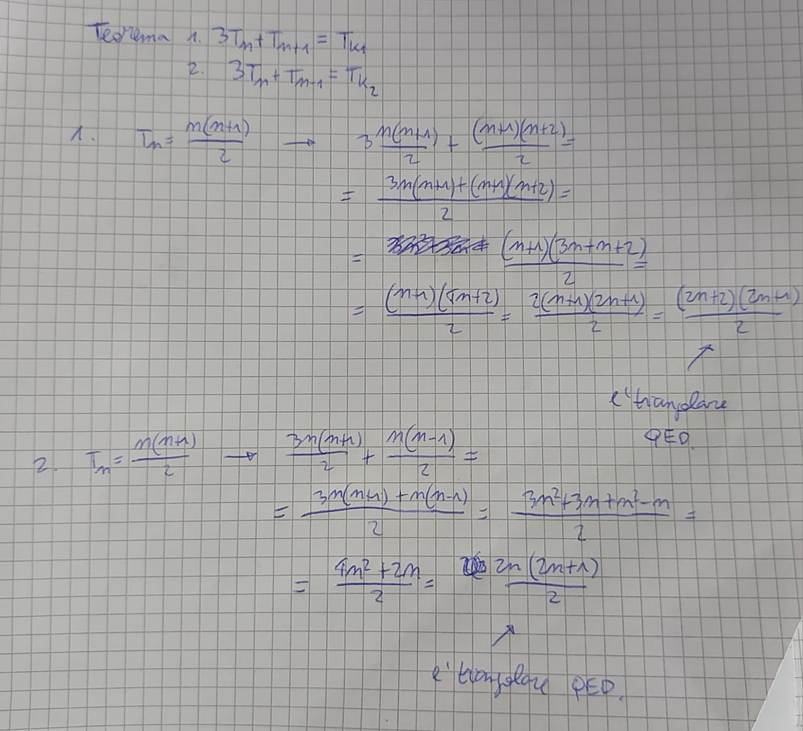 Teorema 1. 3Tn + Tn+1 = Tk1
2. 3Tn + Tn-1 = Tk2
1. Tn = n(n+1)/2 → 3 n(n+1)/2 + (n+1)(n+2)/2 =
= (3n(n+1)+(n+1)(n+2))/2 =
= (n+1)(3n+n+2)/2 =
= (n+1)(4n+2)/2 = 2(n+1)(2n+1)/2 = (2n+2)(2n+1)/2
↗
e' triangolare
QED.
2. Tn = n(n+1)/2 → 3n(n+1)/2 + n(n-1)/2 =
= (3n(n+1)+n(n-1))/2 = (3n²+3n+n²-n)/2 =
= (4n²+2n)/2 = 2n(2n+1)/2
↗
e' triangolare QED.